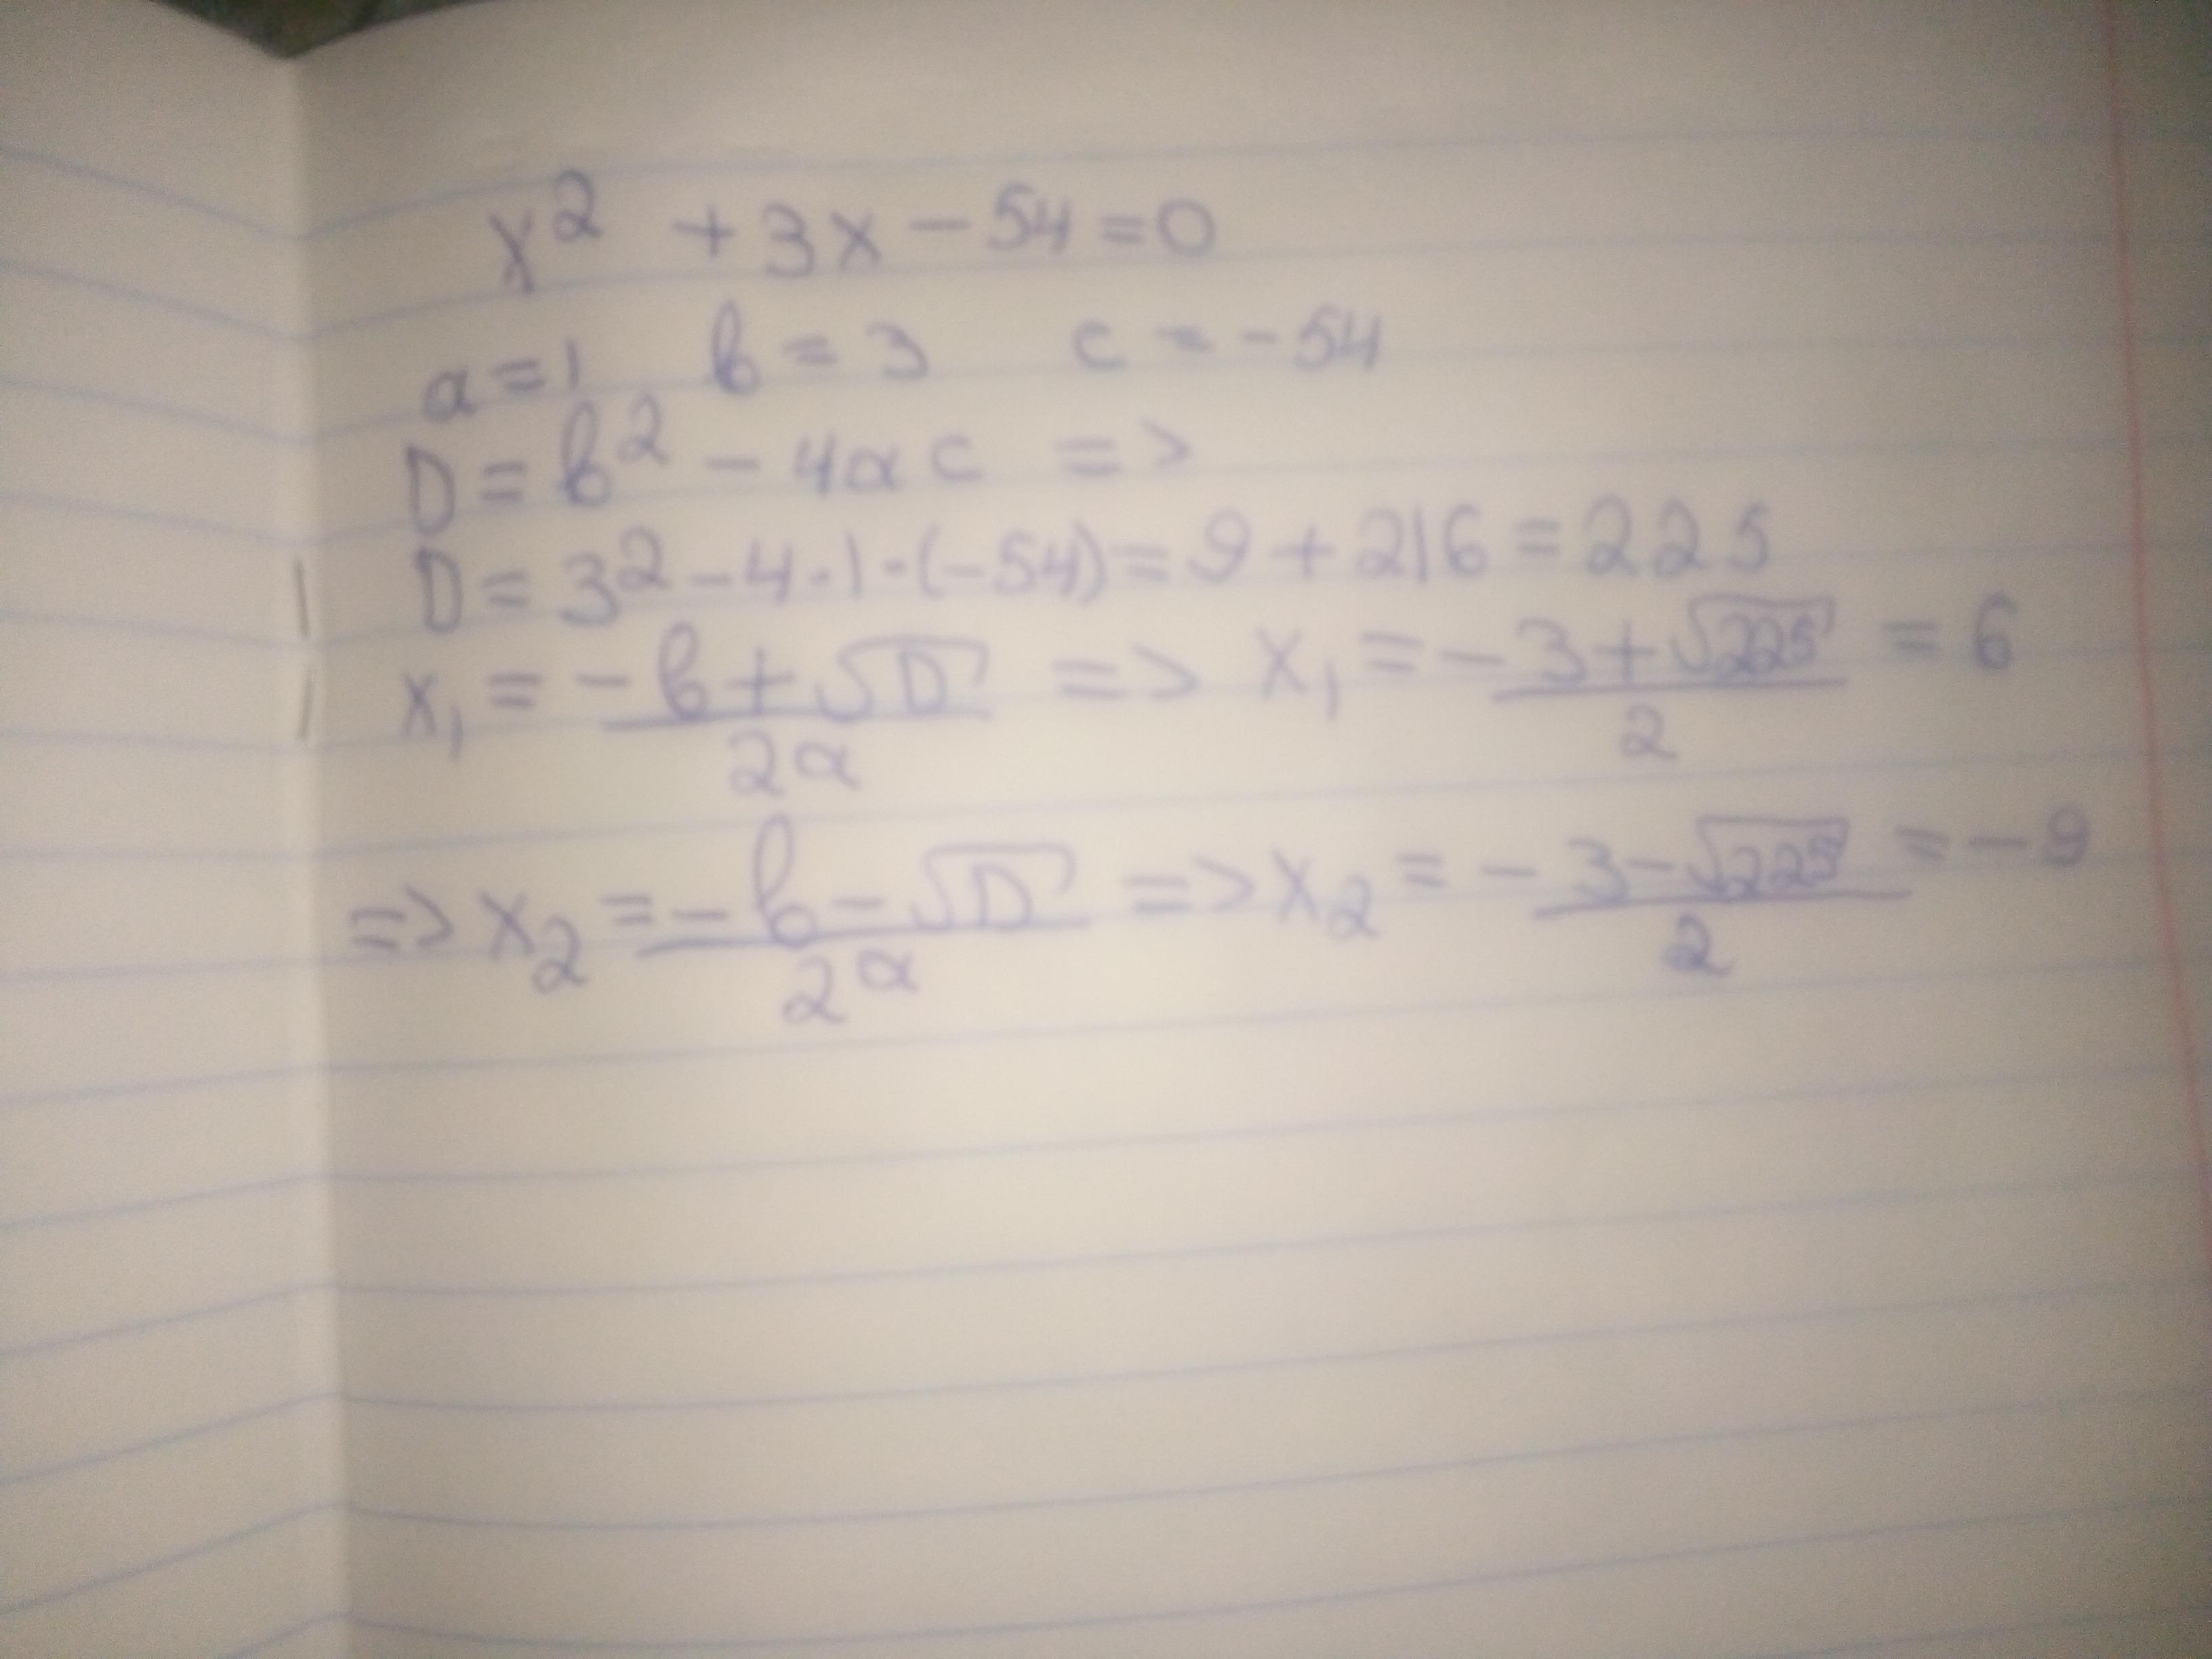 x² + 3x - 54 = 0
a = 1 b = 3 c = -54
D = b² - 4ac =>
D = 3² - 4 · 1 · (-54) = 9 + 216 = 225
x₁ = (-b + √D) / 2a => x₁ = (-3 + √225) / 2 = 6
=> x₂ = (-b - √D) / 2a => x₂ = (-3 - √225) / 2 = -9